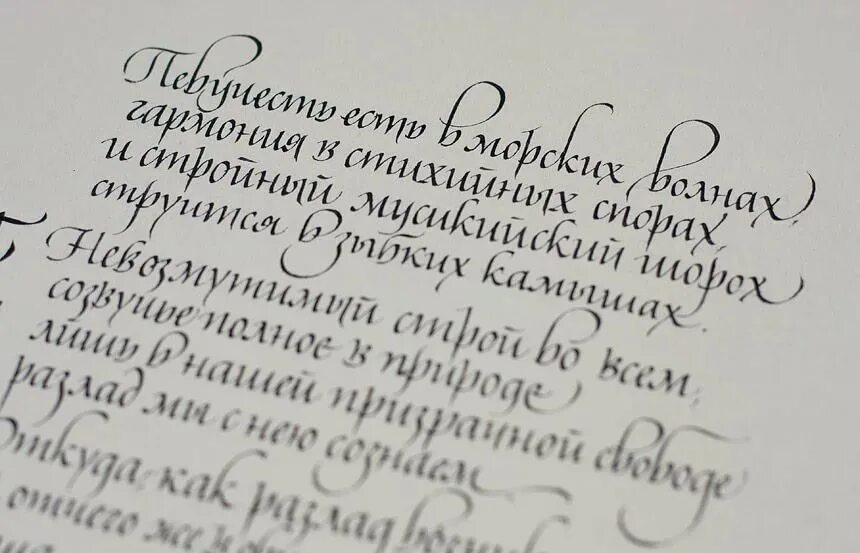 Певучесть есть в морских волнах,
гармония в стихийных спорах,
и стройный мусикийский шорох
струится в зыбких камышах.
Невозмутимый строй во всем,
созвучье полное в природе,
лишь в нашей призрачной свободе
разлад мы с нею сознаем
Откуда, как разлад
отчего же